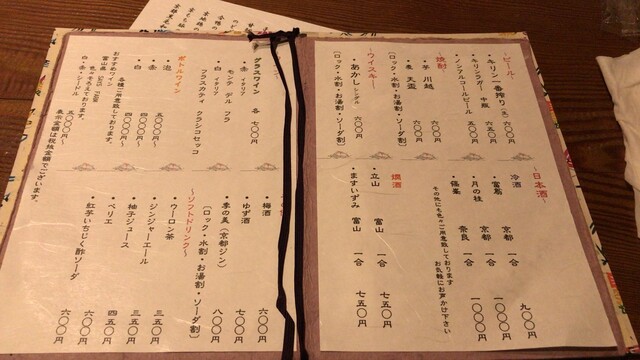 ~ビール~
・キリン一番搾り(生) 六〇〇円
・キリンラガー 中瓶 六五〇円
・ノンアルコールビール 五〇〇円
~焼酎~
・芋 川越 六〇〇円
・麦 天盃 六〇〇円
(ロック・水割・お湯割・ソーダ割)
~ウイスキー~
・あかし シングル 六〇〇円
(ロック・水割・お湯割・ソーダ割)
~日本酒~
冷酒 九〇〇円
・富翁 京都 一合
・月の桂 京都 一合 一〇〇〇円
・篠峯 奈良 一合 一〇〇〇円
その他にも色々ご用意致しております
お気軽にお声かけ下さい
燗酒
・立山 富山 一合 七五〇円
・ますいずみ 富山 一合 七五〇円
グラスワイン 各 七〇〇円
・赤 イタリア
モンテ デル フラ
・白 イタリア
フラスカティ クラシコセッコ
ボトルワイン
・泡 五〇〇〇円~
・赤 四〇〇〇円~
・白 四〇〇〇円~
各種ご用意致しております。
おすすめワイン
富山県 SAYS FARM
色々そろえております。
白・赤・シードル 五〇〇〇円~
表示金額は税抜金額でございます。
梅酒 六〇〇円
・ゆず酒 七〇〇円
・季の美(京都ジン) 八〇〇円
(ロック・水割・お湯割・ソーダ割)
~ソフトドリンク~
・ウーロン茶 三五〇円
・ジンジャーエール 三五〇円
・柚子ジュース 四五〇円
・ペリエ 六〇〇円
・紅芋いちじく酢ソーダ 六〇〇円